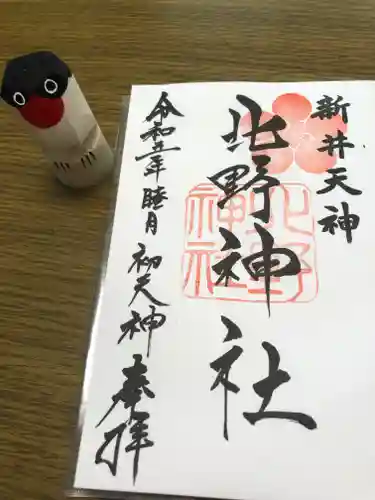 新井天神
北野神社
北野
神社
令和五年睦月 初天神
奉拝